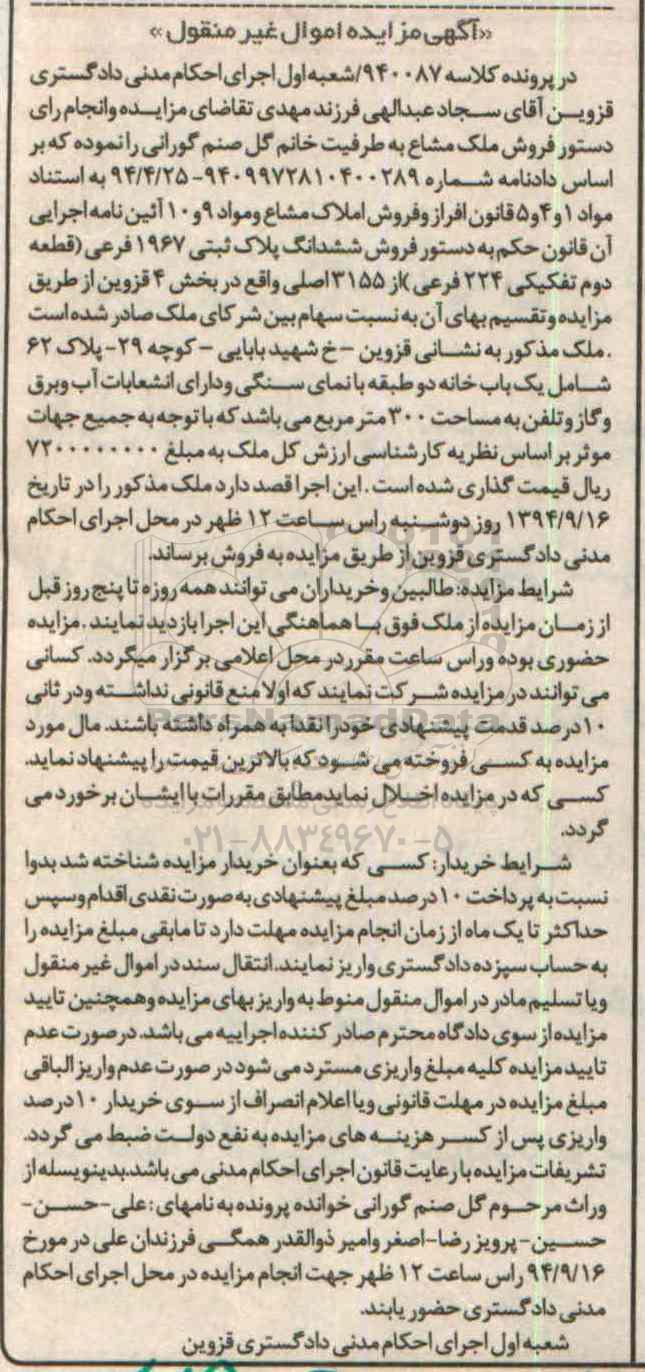 «آگهی مزایده اموال غیر منقول»
در پرونده کلاسه ۹۴۰۰۸۷/شعبه اول اجرای احکام مدنی دادگستری
قزوین آقای سجاد عبدالهی فرزند مهدی تقاضای مزایده وانجام رای
دستور فروش ملک مشاع به طرفیت خانم گل صنم گورانی را نموده که بر
اساس دادنامه شماره ۹۴۰۹۹۷۲۸۱۰۴۰۰۲۸۹-۹۴/۴/۲۵ به استناد
مواد ۱و۴و۵ قانون افراز وفروش املاک مشاع ومواد ۹و۱۰ آئین نامه اجرایی
آن قانون حکم به دستور فروش ششدانگ پلاک ثبتی ۱۹۶۷ فرعی (قطعه
دوم تفکیکی ۲۲۴ فرعی )از ۳۱۵۵ اصلی واقع در بخش ۴ قزوین از طریق
مزایده وتقسیم بهای آن به نسبت سهام بین شرکای ملک صادر شده است
.ملک مذکور به نشانی قزوین -خ شهید بابایی - کوچه ۲۹- پلاک ۶۲
شامل یک باب خانه دو طبقه با نمای سنگی ودارای انشعابات آب وبرق
وگاز وتلفن به مساحت ۳۰۰ متر مربع می باشد که با توجه به جمیع جهات
موثر بر اساس نظریه کارشناسی ارزش کل ملک به مبلغ ۷۲۰۰۰۰۰۰۰۰
ریال قیمت گذاری شده است .این اجرا قصد دارد ملک مذکور را در تاریخ
۱۳۹۴/۹/۱۶ روز دوشنبه راس ساعت ۱۲ ظهر در محل اجرای احکام
مدنی دادگستری قزوین از طریق مزایده به فروش برساند.
شرایط مزایده: طالبین وخریداران می توانند همه روزه تا پنج روز قبل
از زمان مزایده از ملک فوق با هماهنگی این اجرا بازدید نمایند .مزایده
حضوری بوده وراس ساعت مقرردر محل اعلامی برگزار میگردد. کسانی
می توانند در مزایده شرکت نمایند که اولا منع قانونی نداشته ودر ثانی
۱۰درصد قدمت پیشنهادی خودرا نقدا به همراه داشته باشند. مال مورد
مزایده به کسی فروخته می شود که بالاترین قیمت را پیشنهاد نماید.
کسی که در مزایده اخلال نمایدمطابق مقررات با ایشان برخورد می
گردد.
۰۲۱-۸۸۳۴۹۶۷۰-۵
شرایط خریدار: کسی که بعنوان خریدار مزایده شناخته شد بدوا
نسبت به پرداخت ۱۰درصد مبلغ پیشنهادی به صورت نقدی اقدام وسپس
حداکثر تا یک ماه از زمان انجام مزایده مهلت دارد تا مابقی مبلغ مزایده را
به حساب سپرده دادگستری واریز نمایند.انتقال سند در اموال غیر منقول
ویا تسلیم مادر در اموال منقول منوط به واریز بهای مزایده وهمچنین تایید
مزایده از سوی دادگاه محترم صادر کننده اجراییه می باشد. درصورت عدم
تایید مزایده کلیه مبلغ واریزی مسترد می شود در صورت عدم واریز الباقی
مبلغ مزایده در مهلت قانونی ویا اعلام انصراف از سوی خریدار ۱۰درصد
واریزی پس از کسر هزینه های مزایده به نفع دولت ضبط می گردد.
تشریفات مزایده با رعایت قانون اجرای احکام مدنی می باشد.بدینویسله از
وراث مرحوم گل صنم گورانی خوانده پرونده به نامهای :علی-حسن-
حسین-پرویز رضا-اصغر وامیر ذوالقدر همگی فرزندان علی در مورخ
۹۴/۹/۱۶ راس ساعت ۱۲ ظهر جهت انجام مزایده در محل اجرای احکام
مدنی دادگستری حضور یابند.
شعبه اول اجرای احکام مدنی دادگستری قزوین